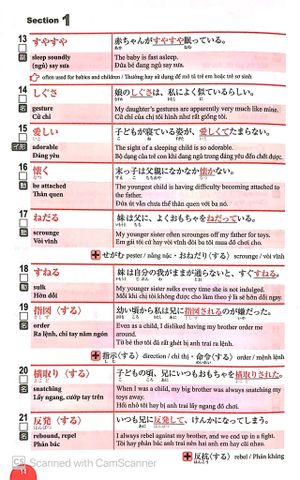 Section 1
13 すやすや
赤ちゃんがすやすや眠っている。
sleep soundly
The baby is fast asleep.
(ngủ) say sưa
Đứa bé đang ngủ say sưa.
often used for babies and children / Thường hay sử dụng để mô tả trẻ em hoặc trẻ sơ sinh
14 しぐさ
娘のしぐさは、私によく似ているらしい。
gesture
My daughter's gestures are apparently very much like mine.
Cử chỉ
Cử chỉ của chị tôi hình như rất giống tôi.
15 愛しい
子どもが寝ている姿が、愛しくてたまらない。
イ形
adorable
The sight of a sleeping child is so adorable.
Đáng yêu
Bộ dạng của trẻ con khi đang ngủ trong đáng yêu đến chết được.
16 懐く
末っ子は父親になかなか懐かない。
be attached
The youngest child is having difficulty becoming attached to
the father.
Thân quen
Đứa út vẫn chưa thể thân quen với ba nó.
17 ねだる
妹は父に、よくおもちゃをねだっている。
scrounge
My younger sister often scrounges off my father for toys.
Vòi vĩnh
Em gái tôi cứ hay vòi vĩnh đòi ba tôi mua đồ chơi cho.
せがむ pester / năng nặc・おねだり(する) scrounge / vòi vĩnh
18 すねる
妹は自分の我がままが通らないと、すぐすねる。
sulk
My younger sister sulks every time she is not indulged.
Hờn dỗi
Mỗi khi chị tôi không được cho làm theo ý là sẽ hờn dỗi ngay.
19 指図(する)
幼い頃から私は兄に指図されるのが嫌だった。
order
Even as a child, I disliked having my brother order me
around.
Ra lệnh, chỉ tay năm ngón
Từ bé thơ tôi đã rất ghét bị anh trai ra lệnh.
指示(する) direction / chỉ thị・命令(する) order / mệnh lệnh
20 横取り(する)
子どもの頃、兄にいつもおもちゃを横取りされた。
snatching
When I was a child, my big brother was always snatching my
toys away.
Lấy ngang, cướp tay trên
Hồi nhỏ tôi hay bị anh trai lấy ngang đồ chơi.
21 反発(する)
いつも兄に反発して、けんかになってしまう。
rebound, repel
I always rebel against my brother, and we end up in a fight.
Phản bác
Tôi hay phản bác anh trai nên hai anh em hay cãi nhau.
反抗(する) rebel / Phản kháng
CS Scanned with CamScanner
14